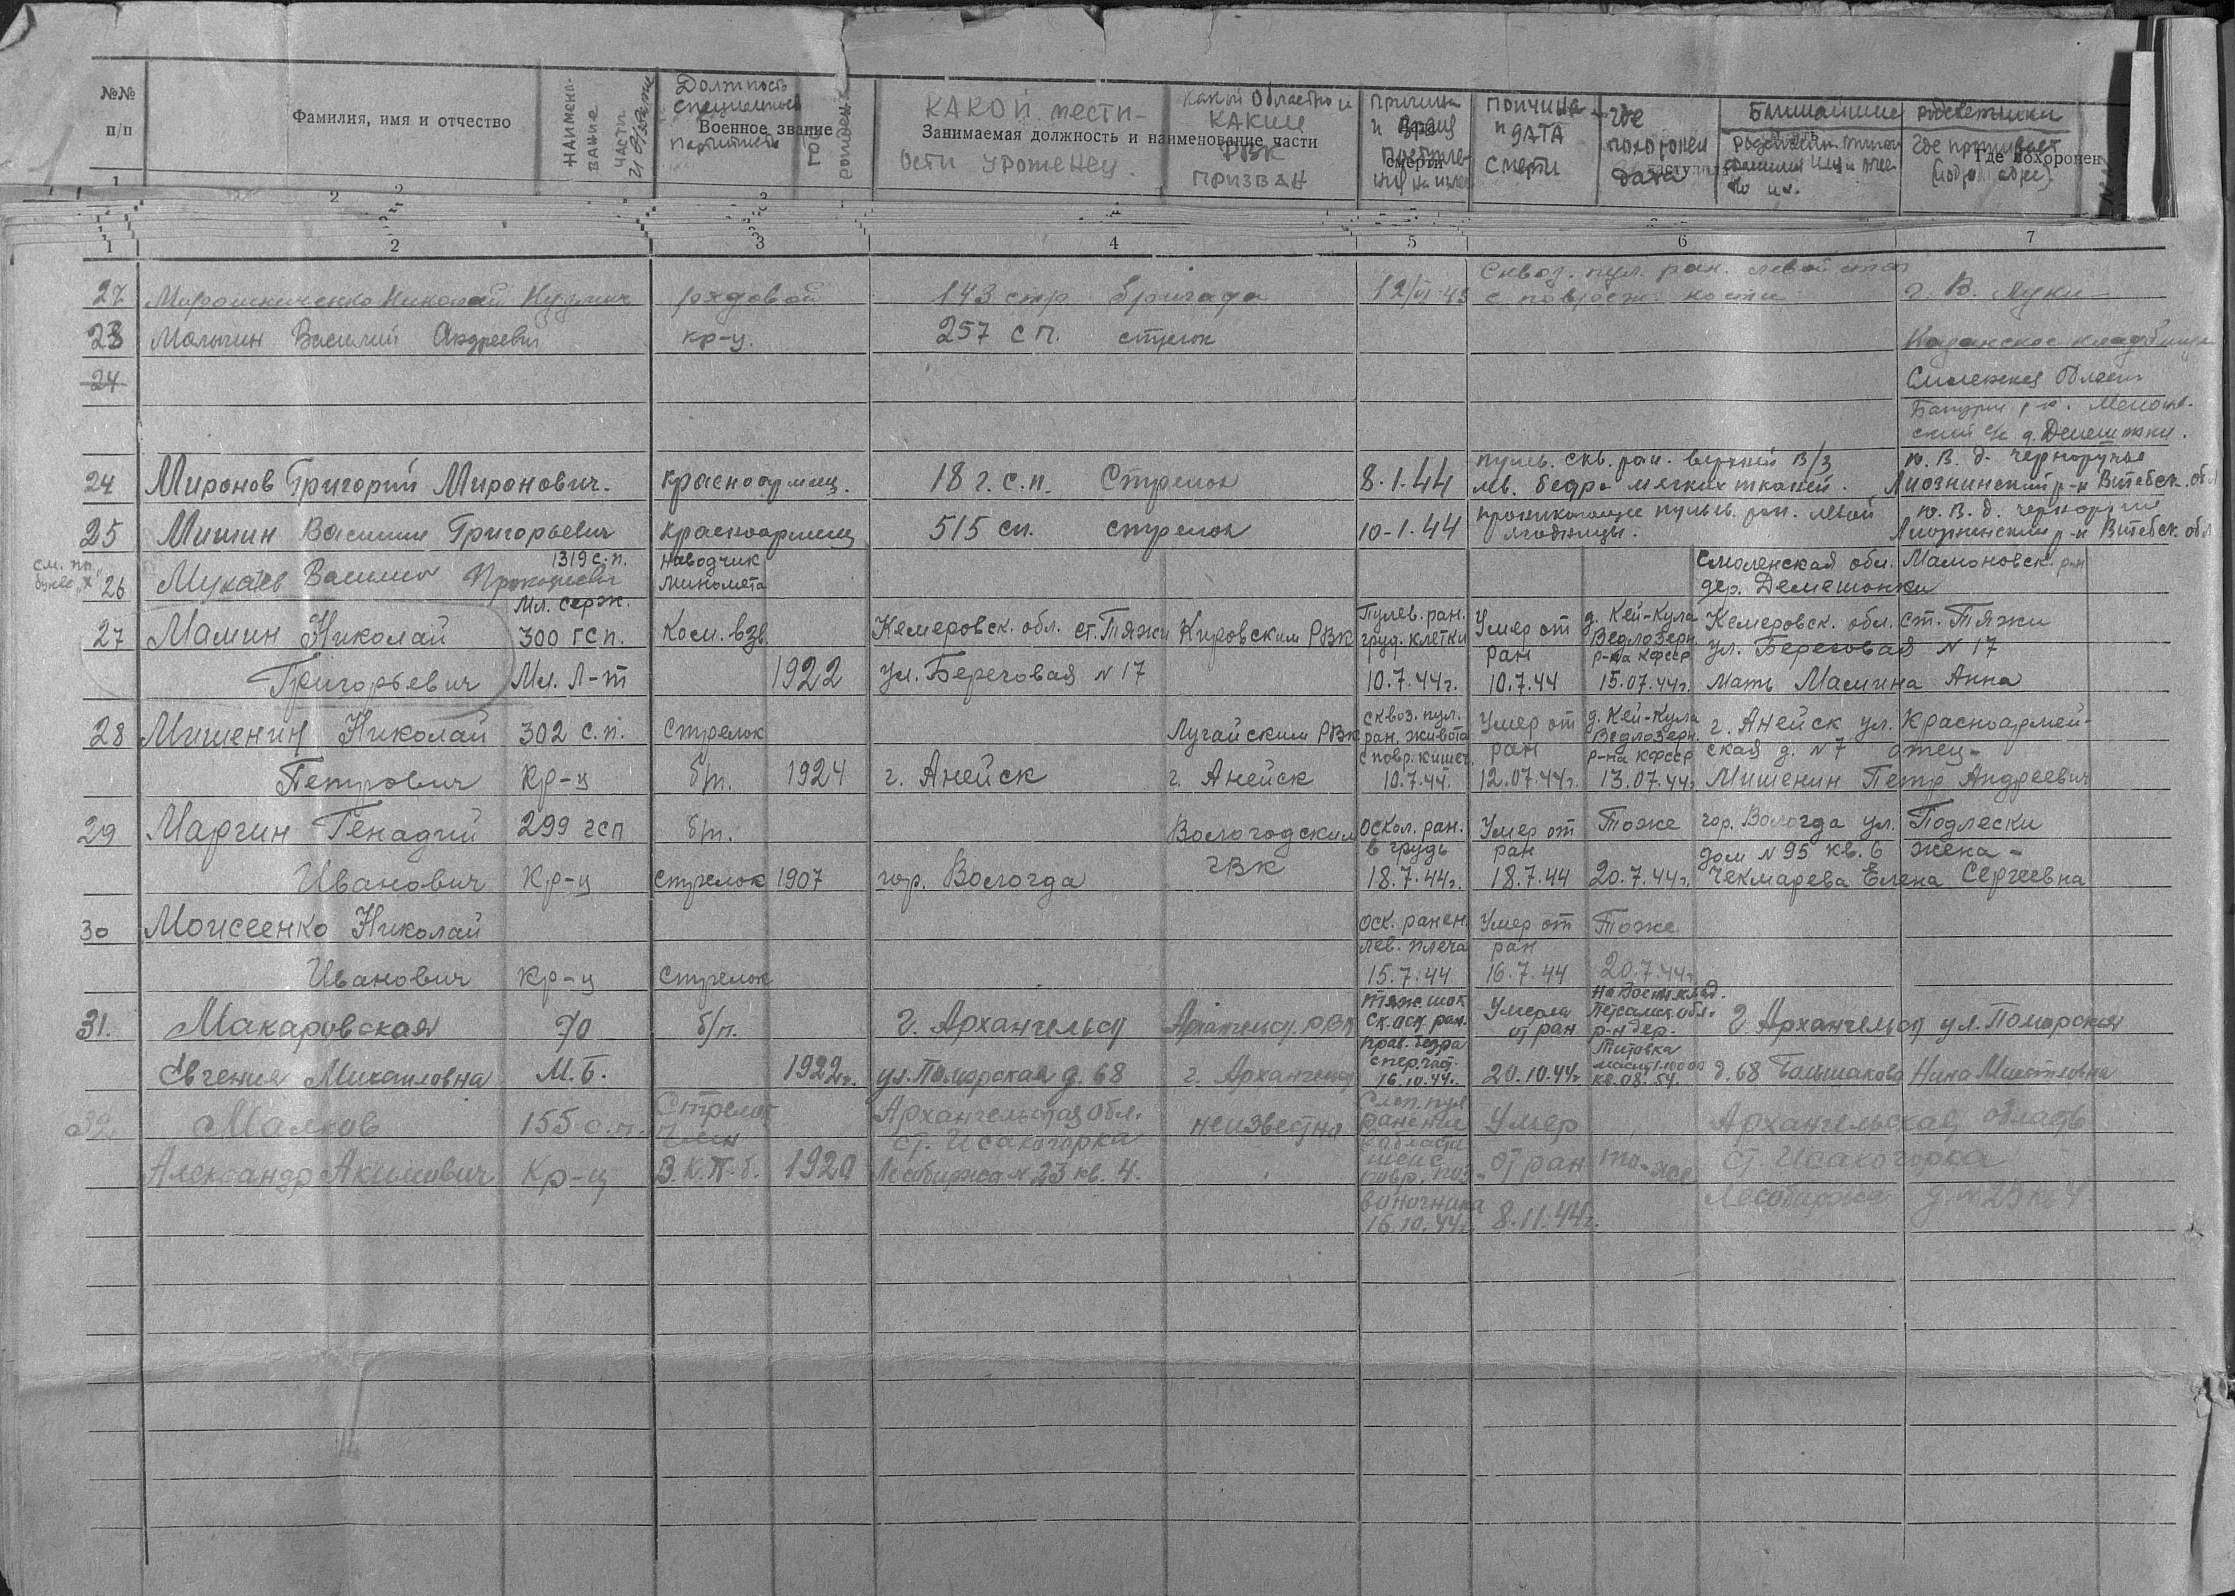 №№ п/п
Фамилия, имя и отчество
Наименование части
Должность
Военное звание
партийность
год рожден
Какой мест-
Занимаемая должность и наименование части
ости уроженец
какой области и
каким
РВК
призван
Причина
и
смерти
Причина
и дата
смерти
где
похоронен
дата
Ближайшие родственники
где проживает
Где похоронен
1 2 3 4 5 6 7
27 Мирошниченко Николай Кузьмич рядовой 143 стр бригада 12/VI 43 Сквоз. пул. ран. левой
с повреж. кости г. В. Луки
23 Малыгин Василий Андреевич кр-ц. 257 СП. стрелок Казанское кладбище
24 Смоленская область
Батурин р-н.
24 Миронов Григорий Миронович. красноармеец. 18 г. с.п. Стрелок 8.1.44 пулев. скв. ран. верхней в/з
лев. бедра мягких тканей. ю. В. д. Черноручье
Лиознинский р-н Витебск. обл
25 Мишин Василий Григорьевич красноармеец 515 сп. стрелок 10-1.44 проникающее пулев. ран. левой
ягодицы. ю. В. д.
Лиознинский р-н Витебск. обл
см. на
букву "Х" 26 Мукаев Василий Прокофьевич 1319 с.п. Мл. серж. наводчик
миномета Смоленская обл. Мамоновск. р-н
дер. Демешонки
27 Мамин Николай 300 гсп. Ком. взв. Кемеровск. обл. ст. Тяжи Кировским РВК Пулев. ран.
груд. клетки Умер от
ран д. Кей-Кула
Ведлозерн.
р-на КФССР Кемеровск. обл. ст. Тяжи
ул. Береговая N 17
Григорьевич Мл. Л-т 1922 ул. Береговая N 17 10.7.44г. 10.7.44 15.07.44г. мать Мамина Анна
28 Мишенин Николай 302 с.п. Стрелок Лугайским РВК сквоз. пул.
ран. живота
с повр. кишеч. Умер от
ран д. Кей-Кула
Ведлозерн.
р-на КФССР г. Анейск ул. Красноармей-
ская д. N 7 отец -
Петрович Кр-ц б/п. 1924 г. Анейск г. Анейск 10.7.44. 12.07.44г. 13.07.44г. Мишенин Петр Андреевич
29 Маргин Генадий 299 гсп б/п. Вологодским
ГВК оскол. ран.
в грудь Умер от
ран Тоже гор. Вологда ул. Подлески
дом N 95 кв. 6 жена -
Иванович Кр-ц Стрелок 1907 гор. Вологда 18.7.44г. 18.7.44 20.7.44г. Чекмарева Елена Сергеевна
30 Моисеенко Николай оск. ранен.
лев. плеча Умер от
ран Тоже
Иванович Кр-ц Стрелок 15.7.44 16.7.44 20.7.44г.
31. Макаровская б/п. г. Архангельск Архангельск. РВК
ск. оск. ран. Умерла
от ран
р-н дер. г Архангельск ул. Поморская
Евгения Михаиловна М.Б. 1922г. ул. Поморская д. 68 г. Архангельск прав. бедра
16.10.44г. 20.10.44г. Титовка д. 68 Нина
32 Малков 155 с.п. Стрелок
Член Архангельская обл.
ст. Исакогорка неизвестно Слеп. пул
ранение Умер Архангельская область
Александр Акимович Кр-ц В.К.П.б. 1920 Лесобиржа N 23 кв. 4. повр. поз-
воночника
16.10.44г. от ран
8.11.44г. то-же ст Исакогорка
Лесобиржа